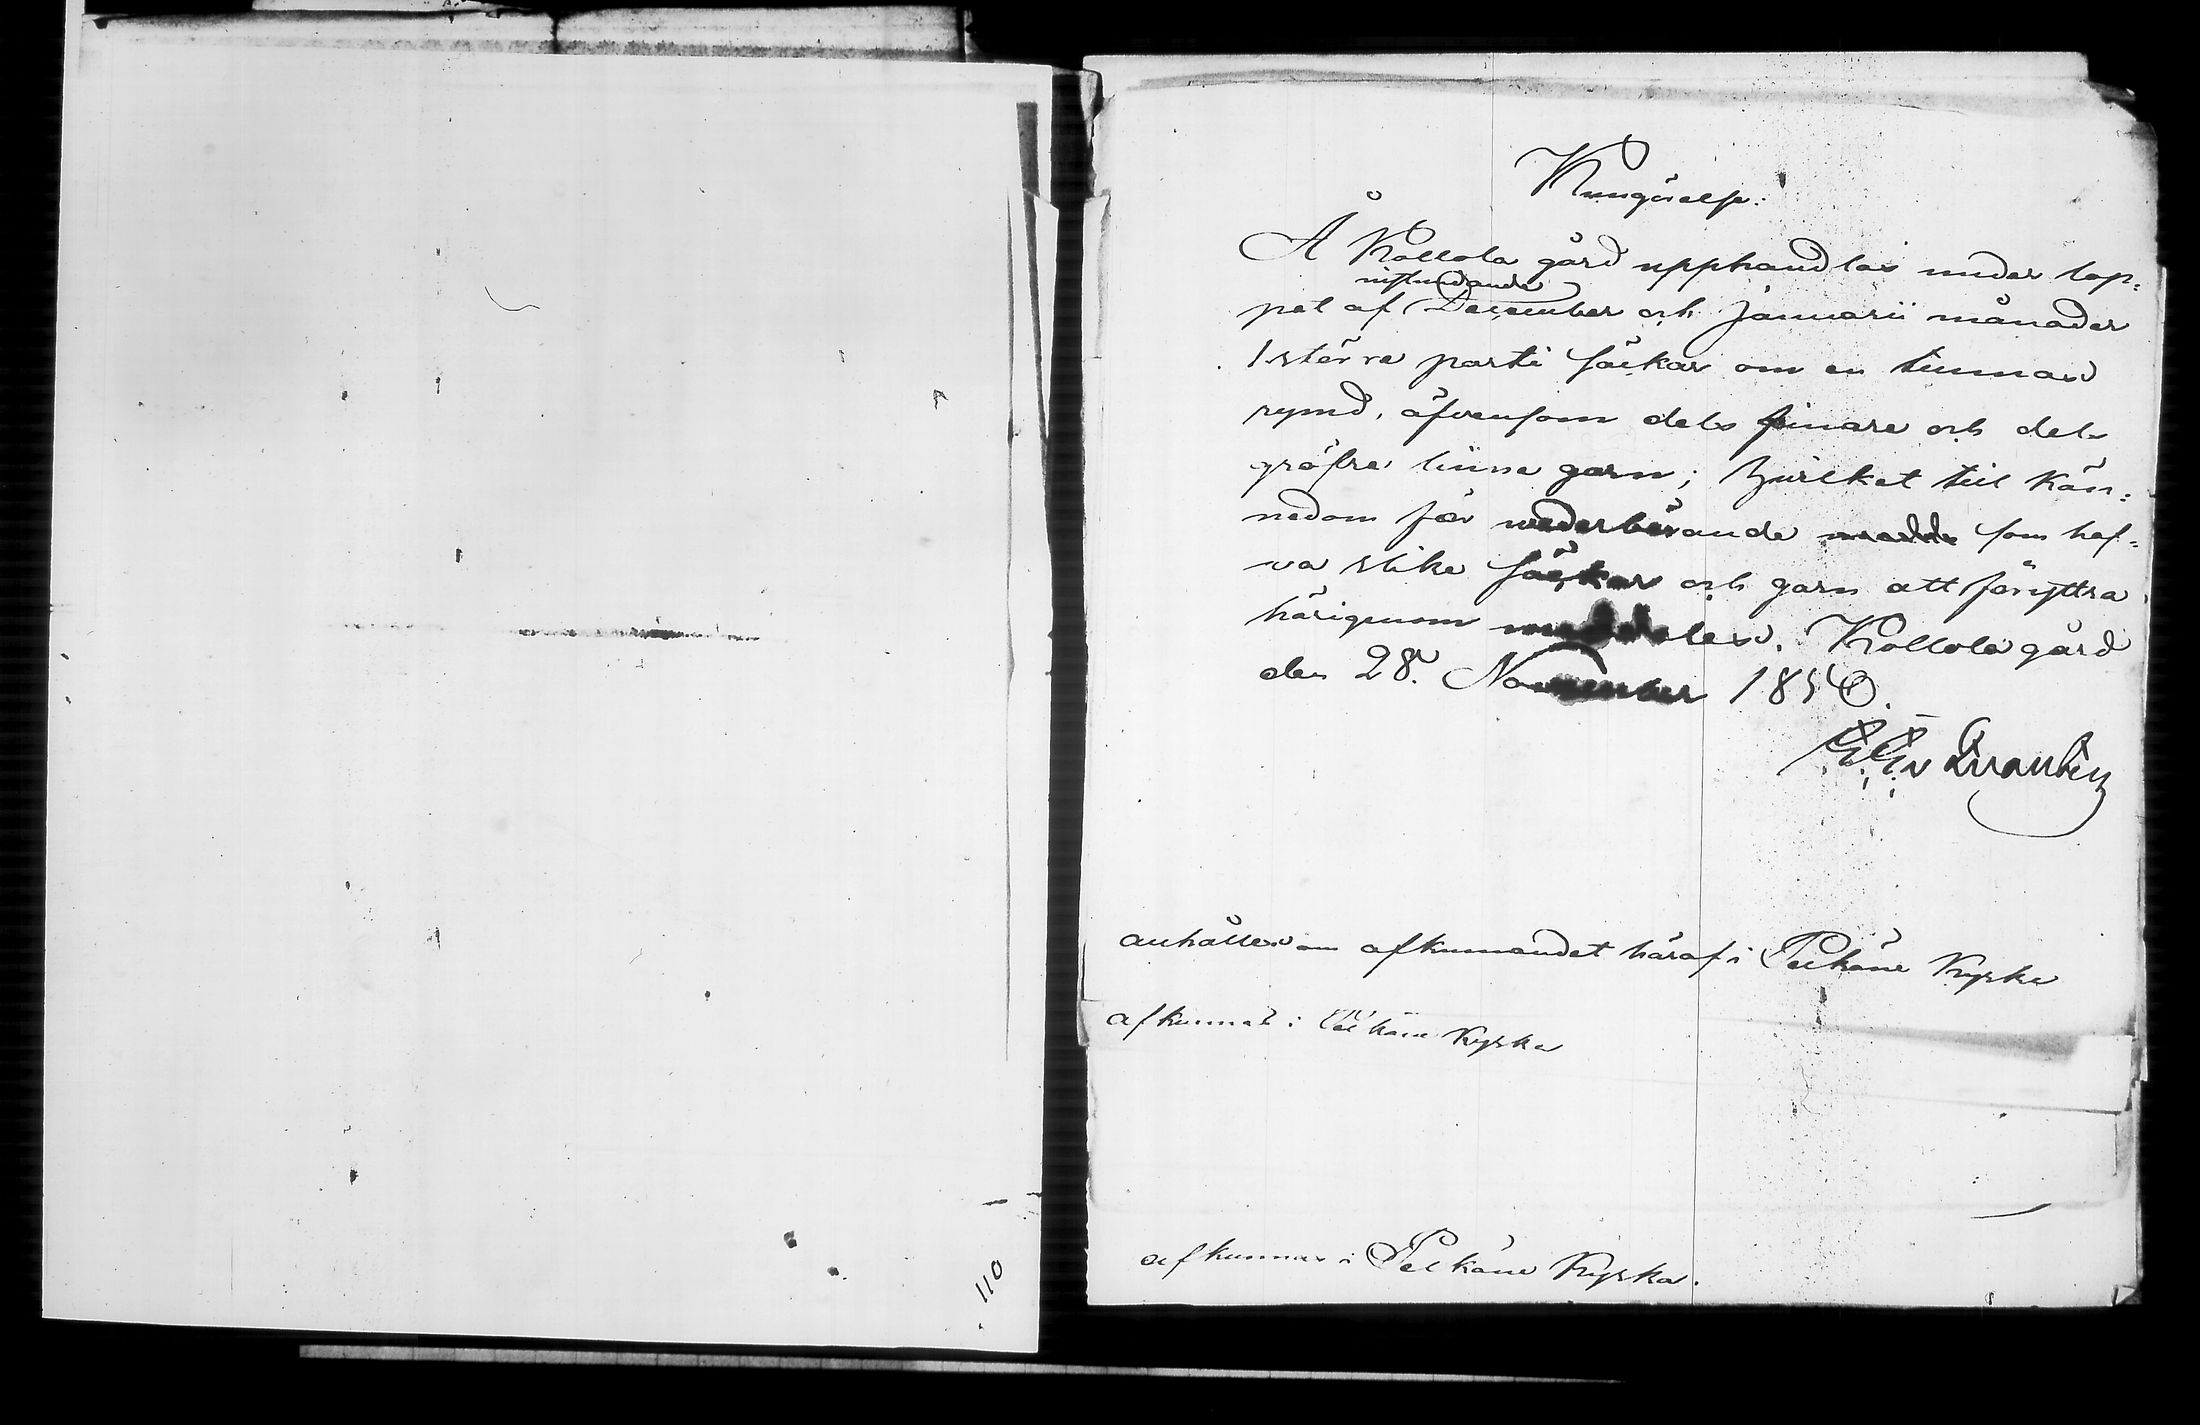 Kungörelse.
Å Kollola gård upphandlas under lop-
instundande
pet af December och Januarii månader
1 större parti säckar om en tunnas
rymd, äfvensom dels finare och dels
gröfre linne garn; hvilket till kän-
nedom för wederbörande som haf-
va slike säckar och garn att föryttra
härigenom meddeles. Kollola gård
den 28. November 1850.
anhålles om afkunnandet häraf i Pelkäne Kyrka
afkunnat i Pelkäne Kyrka
110
afkunnas i Pelkäne Kyrka.